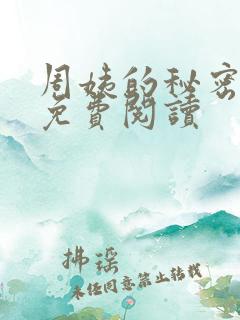 周姨的秘密
免費閱讀
拂瑶
未经同意禁止转载